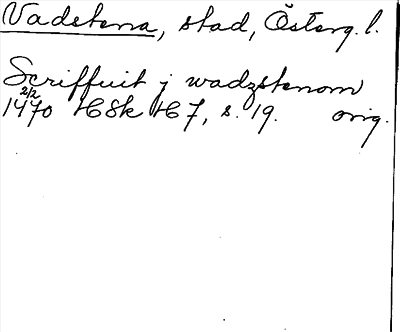 Vadstena, stad, Österg. l.
Scriffuit j wadzstenom
2/2
1470 HSk H 7, s. 19. orig.